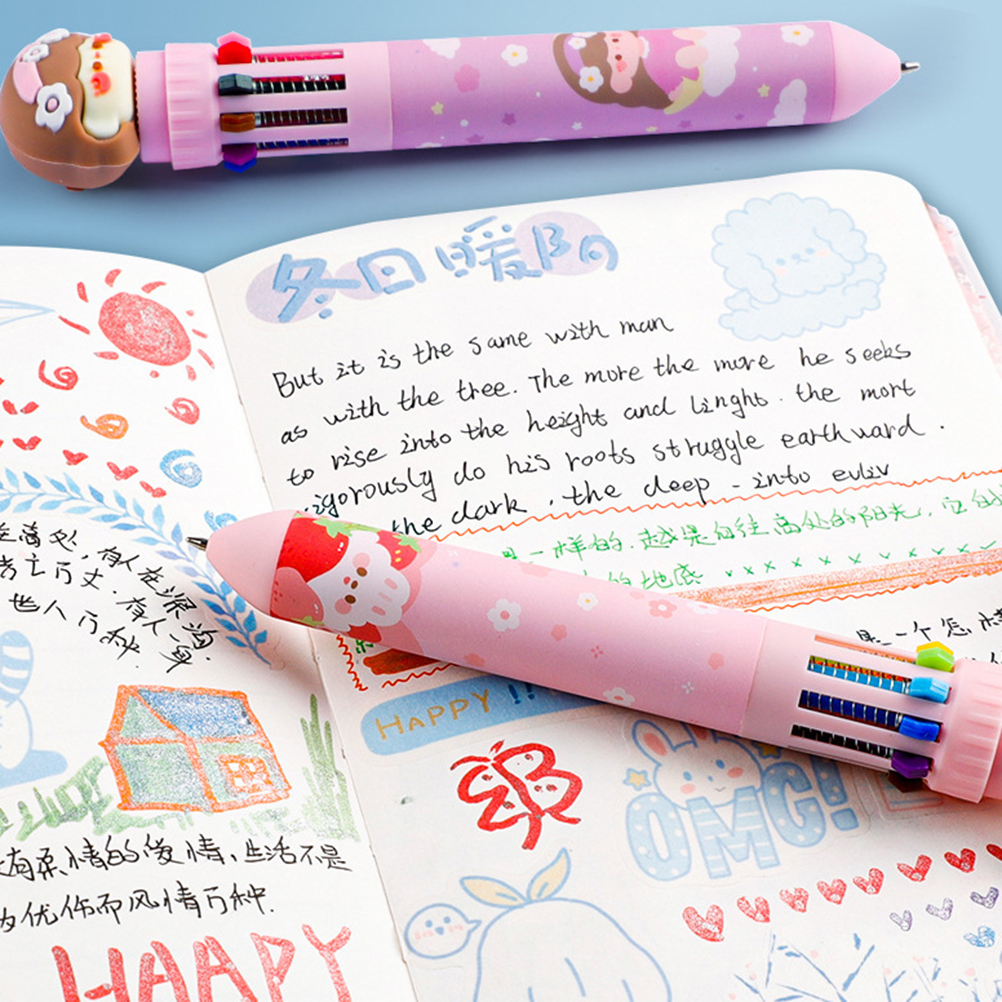 在高处,有人在深沟
考之万丈.有人一身
也人万种.
有柔情的爱情,生活不是
为优伤而风情万种.
HAAPY
冬日暖阳
But it is the same with man
as with the tree. The more the more he seeks
to rise into the height and linght. the mort
vigorously do his roots struggle earthward.
the dark, the deep - into evliv
是一样的.越是向往高处的阳光,它的
的地底 ×××××××××××
是一个怎
HAPPY !!
OMG!